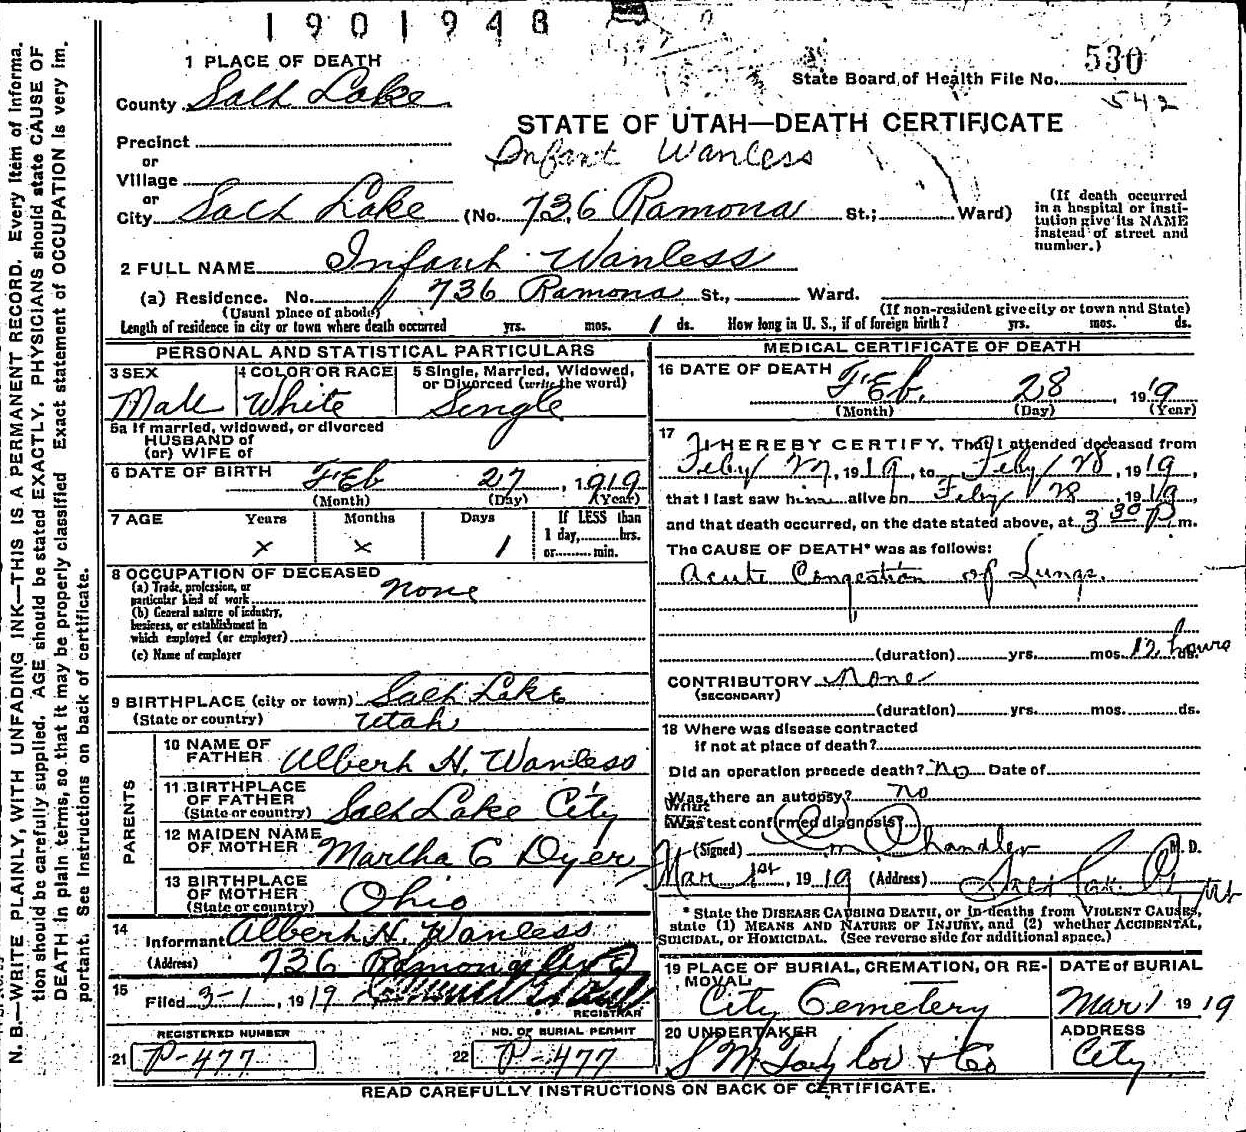 1901948
1 PLACE OF DEATH
State Board of Health File No. 530
542
County Salt Lake
STATE OF UTAH—DEATH CERTIFICATE
Infant Wanless
Precinct
or
Village
or
City Salt Lake (No. 736 Ramona St.; Ward)
(If death occurred in a hospital or institution give its NAME instead of street and number.)
2 FULL NAME Infant Wanless
(a) Residence. No. 736 Ramona St., Ward.
(Usual place of abode) (If non-resident give city or town and State)
Length of residence in city or town where death occurred yrs. mos. 1 ds. How long in U. S., if of foreign birth? yrs. mos. ds.
PERSONAL AND STATISTICAL PARTICULARS
3 SEX Male
4 COLOR OR RACE White
5 Single, Married, Widowed, or Divorced (write the word) Single
5a If married, widowed, or divorced
HUSBAND of
(or) WIFE of
6 DATE OF BIRTH Feb 27, 1919
(Month) (Day) (Year)
7 AGE Years Months Days If LESS than
x x 1 1 day, hrs.
or min.
8 OCCUPATION OF DECEASED
(a) Trade, profession, or
particular kind of work none
(b) General nature of industry,
business, or establishment in
which employed (or employer)
(c) Name of employer
9 BIRTHPLACE (city or town) Salt Lake
(State or country) Utah
PARENTS
10 NAME OF FATHER Albert H. Wanless
11 BIRTHPLACE OF FATHER (State or country) Salt Lake City
12 MAIDEN NAME OF MOTHER Martha C Dyer
13 BIRTHPLACE OF MOTHER (State or country) Ohio
14 Informant Albert H. Wanless
(Address) 736 Ramona Ave
15 Filed 3-1, 1919
REGISTRAR
REGISTERED NUMBER NO. OF BURIAL PERMIT
21 P-477 22 P-477
MEDICAL CERTIFICATE OF DEATH
16 DATE OF DEATH Feb. 28, 1919
(Month) (Day) (Year)
17 I HEREBY CERTIFY, That I attended deceased from
Feby 27, 1919, to Feby 28, 1919,
that I last saw him alive on Feby 28, 1919,
and that death occurred, on the date stated above, at 3 30 P m.
The CAUSE OF DEATH* was as follows:
Acute Congestion of Lungs.
(duration) yrs. mos. 12 hours ds.
CONTRIBUTORY None
(SECONDARY)
(duration) yrs. mos. ds.
18 Where was disease contracted
if not at place of death?
Did an operation precede death? No Date of
Was there an autopsy? No
What test confirmed diagnosis?
(Signed) C M Chandler M. D.
Mar 1st, 1919 (Address) Salt Lake City Ut
* State the DISEASE CAUSING DEATH, or in deaths from VIOLENT CAUSES,
state (1) MEANS AND NATURE OF INJURY, and (2) whether ACCIDENTAL,
SUICIDAL, or HOMICIDAL. (See reverse side for additional space.)
19 PLACE OF BURIAL, CREMATION, OR REMOVAL City Cemetery
DATE of BURIAL Mar 1 1919
20 UNDERTAKER S M Taylor & Co
ADDRESS City
READ CAREFULLY INSTRUCTIONS ON BACK OF CERTIFICATE.
N. B.—WRITE PLAINLY, WITH UNFADING INK—THIS IS A PERMANENT RECORD. Every item of Informa-
tion should be carefully supplied. AGE should be stated EXACTLY. PHYSICIANS should state CAUSE OF
DEATH in plain terms, so that it may be properly classified Exact statement of OCCUPATION is very im-
portant. See instructions on back of certificate.